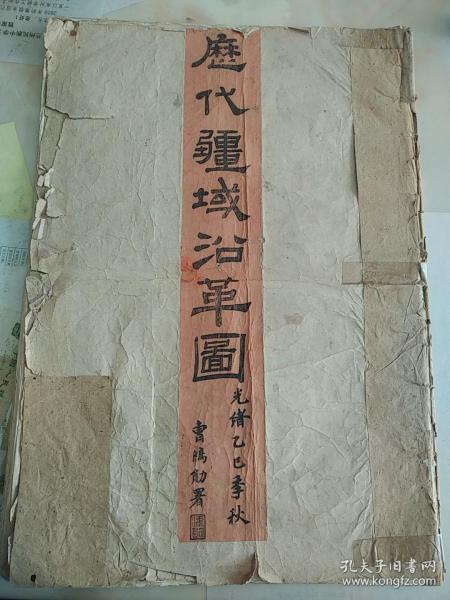 歷代疆域沿革圖
光緒乙巳季秋
曹鴻勛署
孔夫子旧书网
www.kongfz.com